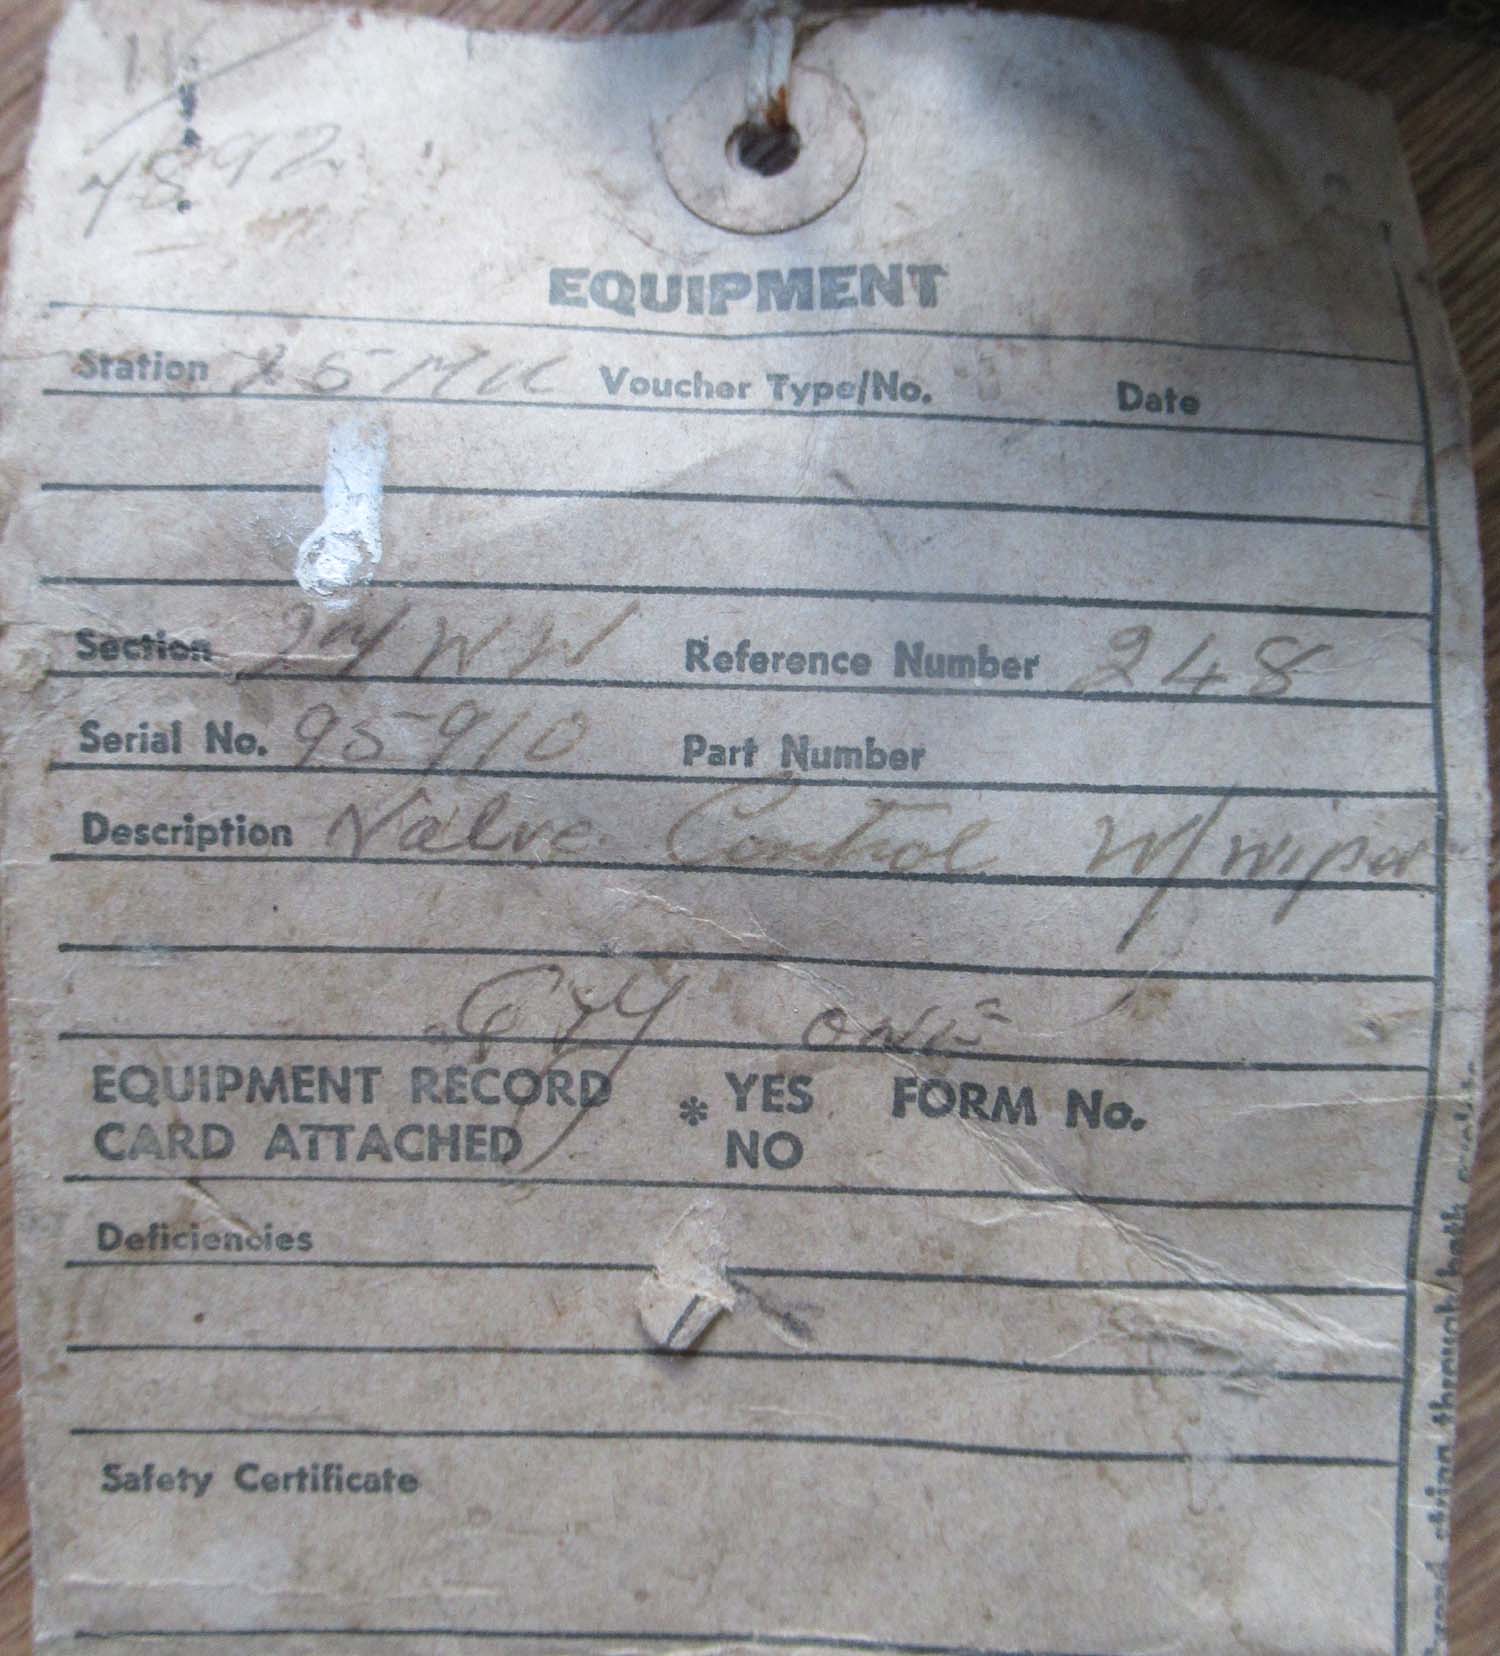 EQUIPMENT
Station Voucher Type/No. Date
Section Reference Number 248
Serial No. 95910 Part Number
Description Valve Control W/wiper
QTY ONE
EQUIPMENT RECORD * YES FORM No.
CARD ATTACHED NO
Deficiencies
Safety Certificate
string through both